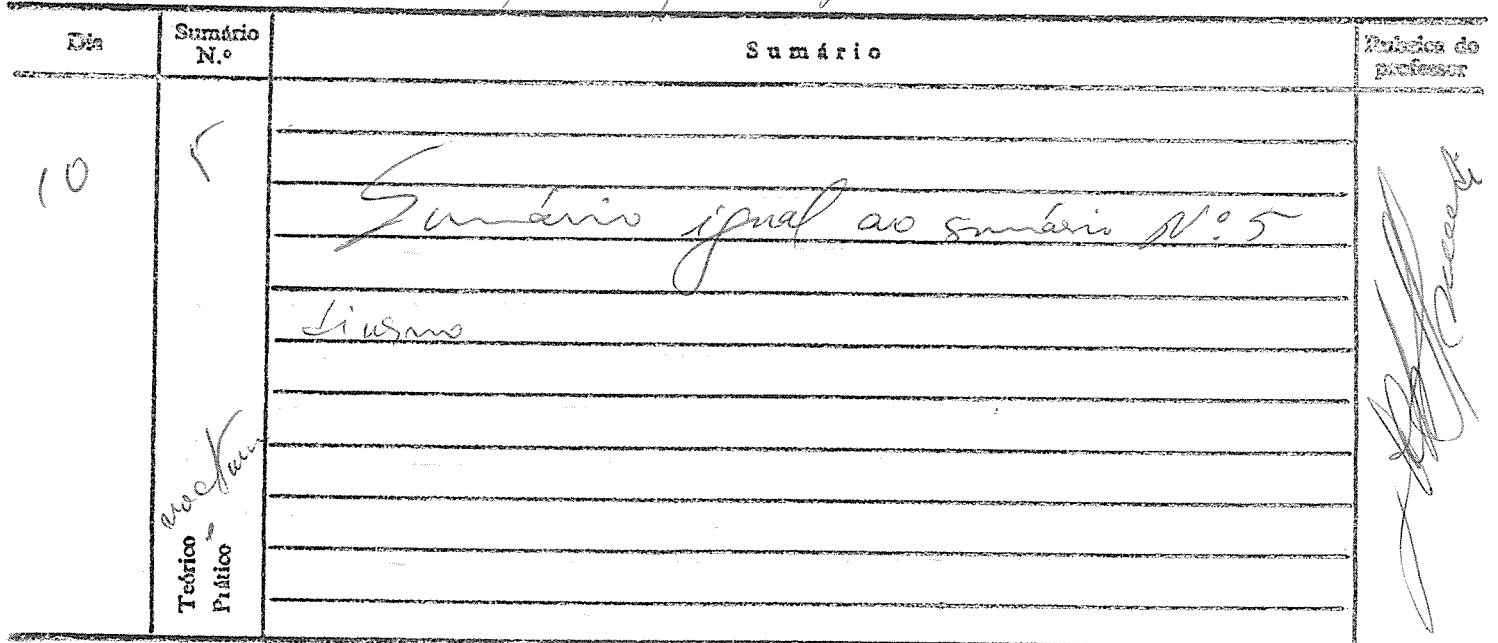 Dia
Sumário N.º
Sumário
Rubrica do professor
10
5
Sumário igual ao sumário Nº 5
diurno
nocturno
Teórico
Prático